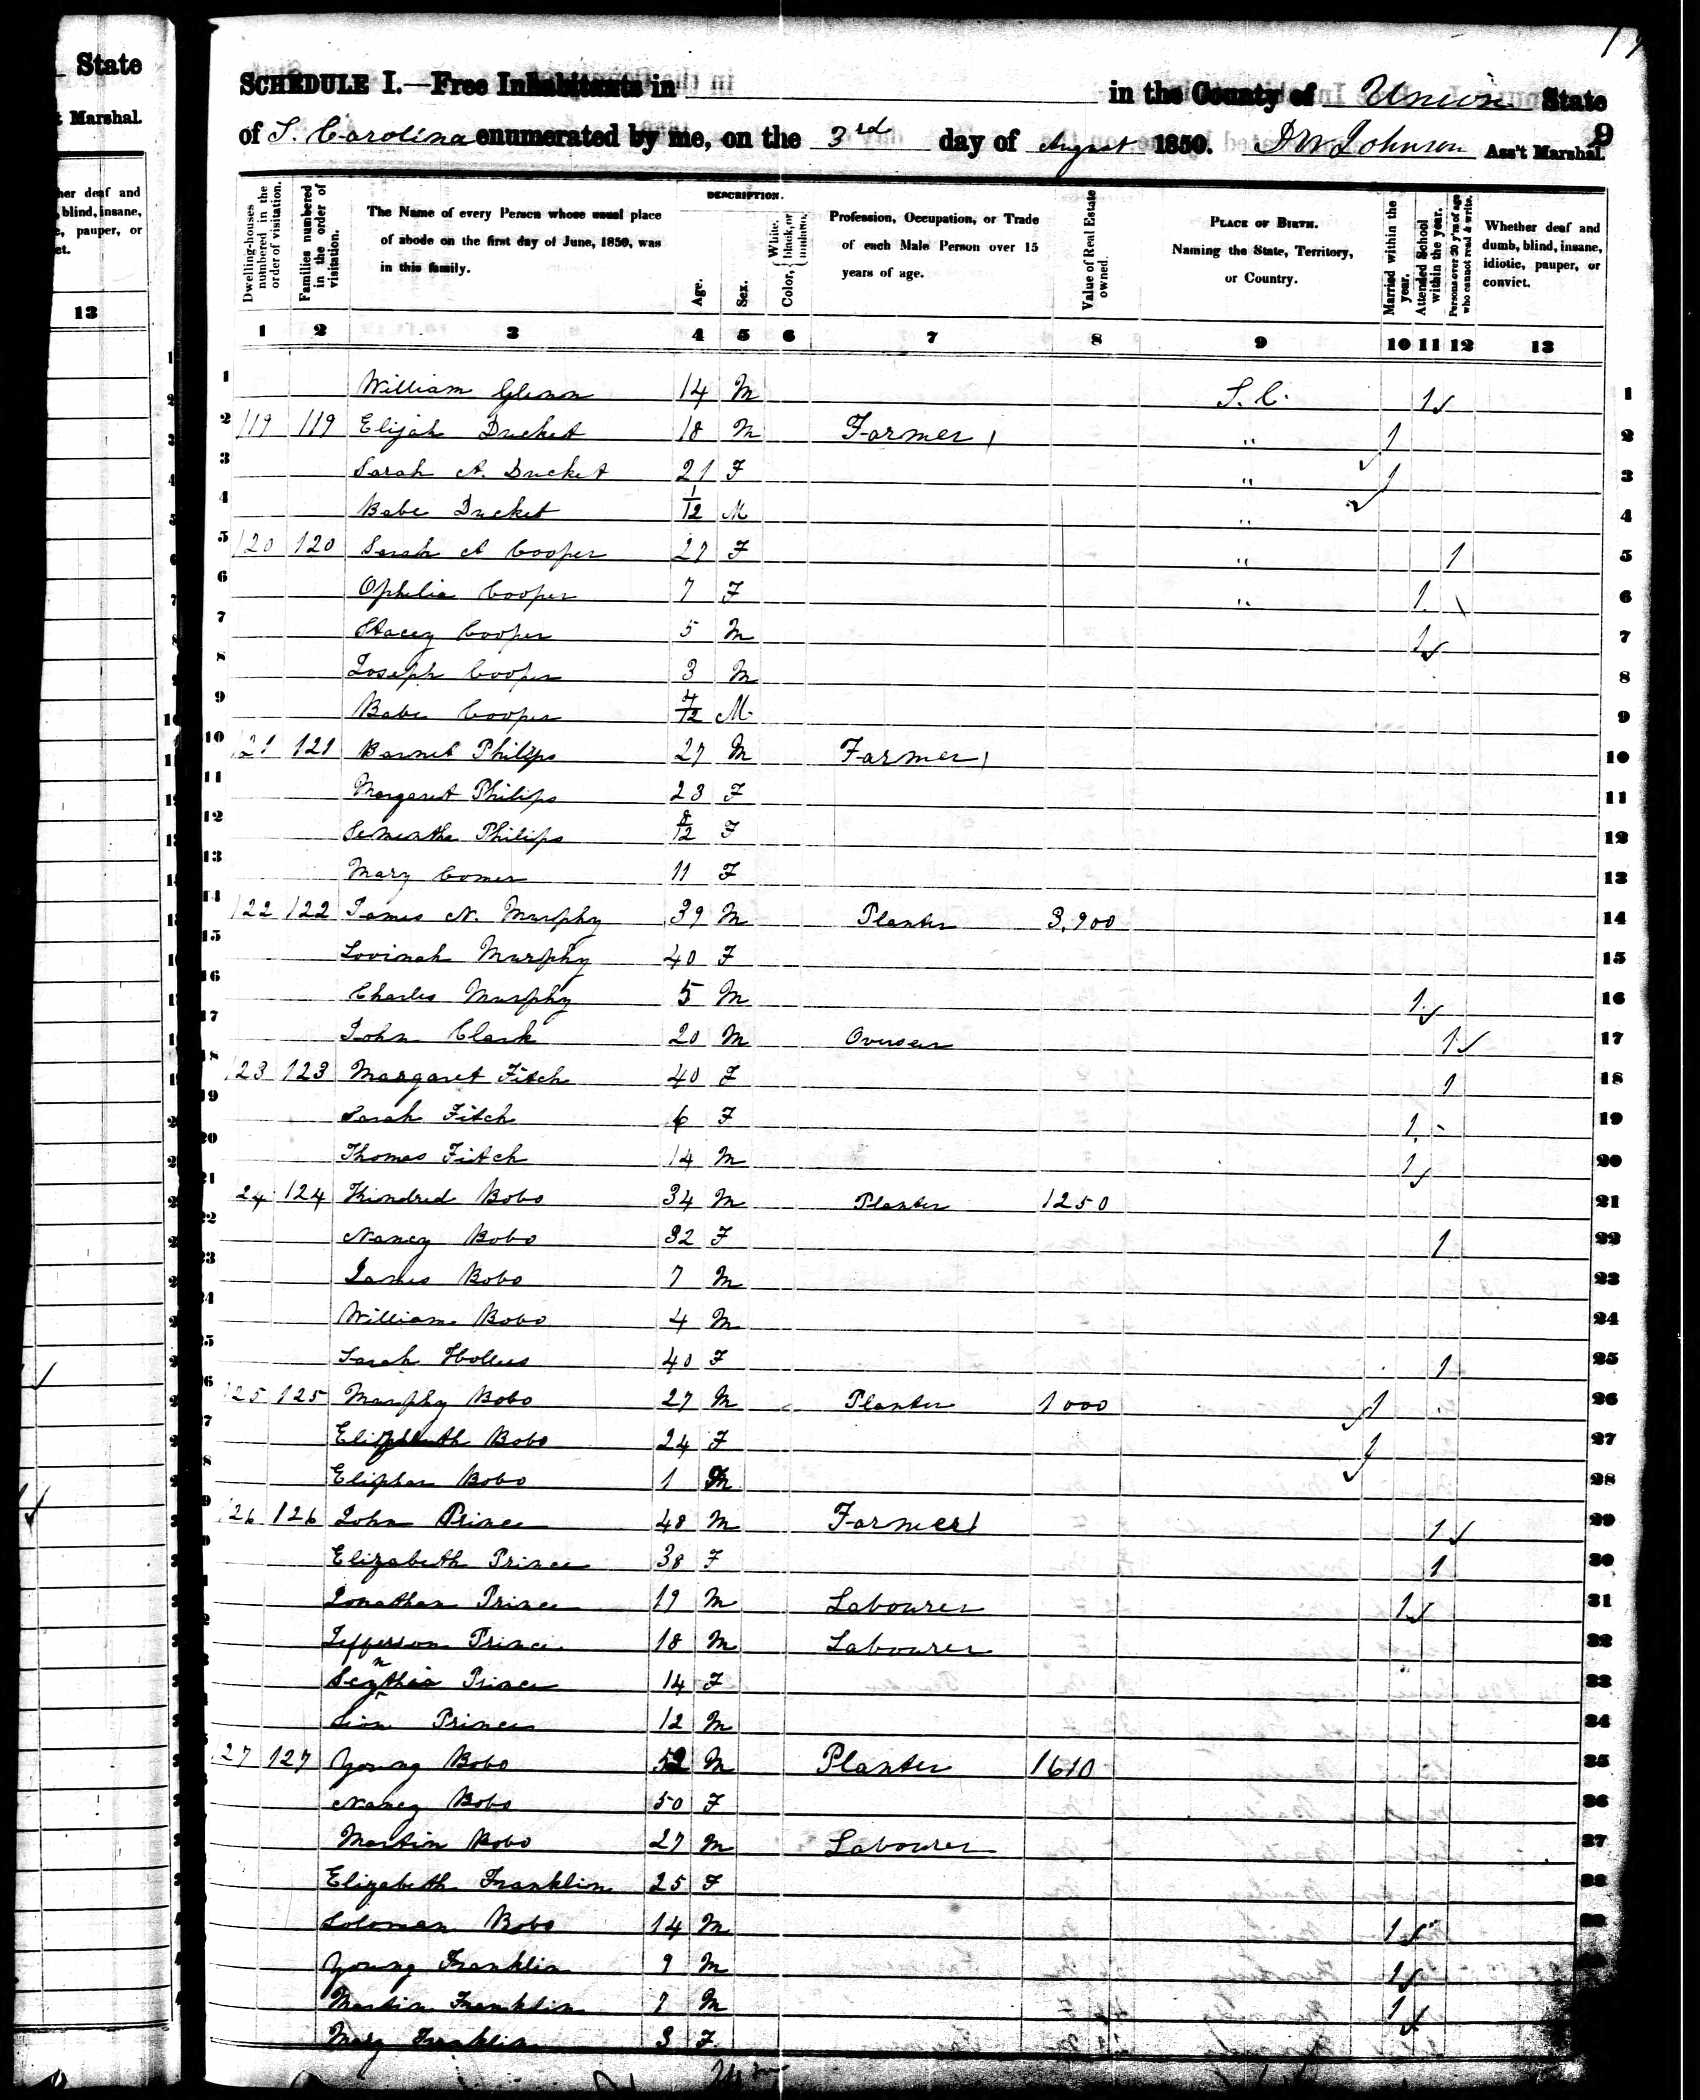 State
t Marshal.
her deaf and
, blind, insane,
c, pauper, or
et.
13
SCHEDULE I.—Free Inhabitants in in the County of Union State
of S. Carolina enumerated by me, on the 3rd day of August 1850. Johnson Ass't Marshal.
9
Dwelling-houses numbered in the order of visitation.
Families numbered in the order of visitation.
The Name of every Person whose usual place of abode on the first day of June, 1850, was in this family.
DESCRIPTION.
Age.
Sex.
Color, { White, black, or mulatto.
Profession, Occupation, or Trade of each Male Person over 15 years of age.
Value of Real Estate owned.
PLACE OF BIRTH. Naming the State, Territory, or Country.
Married within the year.
Attended School within the year.
Persons over 20 y'rs of age who cannot read & write.
Whether deaf and dumb, blind, insane, idiotic, pauper, or convict.
1 2 3 4 5 6 7 8 9 10 11 12 13
1 William Glenn 14 M S. C. 1 1
2 119 119 Elijah Ducket 18 M Farmer " 1 2
3 Sarah A. Ducket 21 F " 1 3
4 Babe Ducket 1/12 M " 4
5 120 120 Sarah A Cooper 27 F " 1 5
6 Ophelia Cooper 7 F " 1 6
7 Stacey Cooper 5 M 1 7
8 Joseph Cooper 3 M 8
9 Babe Cooper 4/12 M 9
10 121 121 Barnet Philips 27 M Farmer 10
11 Margaret Philips 23 F 11
12 Philips 8/12 F 12
13 Mary Comer 11 F 13
14 122 122 James N. Murphy 39 M Planter 3,900 14
15 Lovinah Murphy 40 F 15
16 Charles Murphy 5 M 1 16
17 John Clark 20 M Overseer 1 17
18 123 123 Margaret Fitch 40 F 1 18
19 Sarah Fitch 6 F 1 19
20 Thomas Fitch 14 M 1 20
21 124 124 Kindred Bobo 34 M Planter 1250 21
22 Nancy Bobo 32 F 1 22
23 James Bobo 7 M 23
24 William Bobo 4 M 24
25 Sarah 40 F 1 25
26 125 125 Murphy Bobo 27 M Planter 1000 1 26
27 Bobo 24 F 1 27
28 Eliphas Bobo 1 M 28
29 126 126 John Prince 48 M Farmer 1 29
30 Elizabeth Prince 38 F 1 30
31 Jonathan Prince 19 M Labourer 1 31
32 Jefferson Prince 18 M Labourer 32
Prince 14 F 33
Prince 12 M 34
127 127 Young Bobo 52 M Planter 1610 35
Nancy Bobo 50 F 36
Martin Bobo 27 M Labourer 37
Elizabeth Franklin 25 F 38
Soloman Bobo 14 M 1
Young Franklin 9 M 1
Martin Franklin 7 M 1
Mary Franklin 3 F